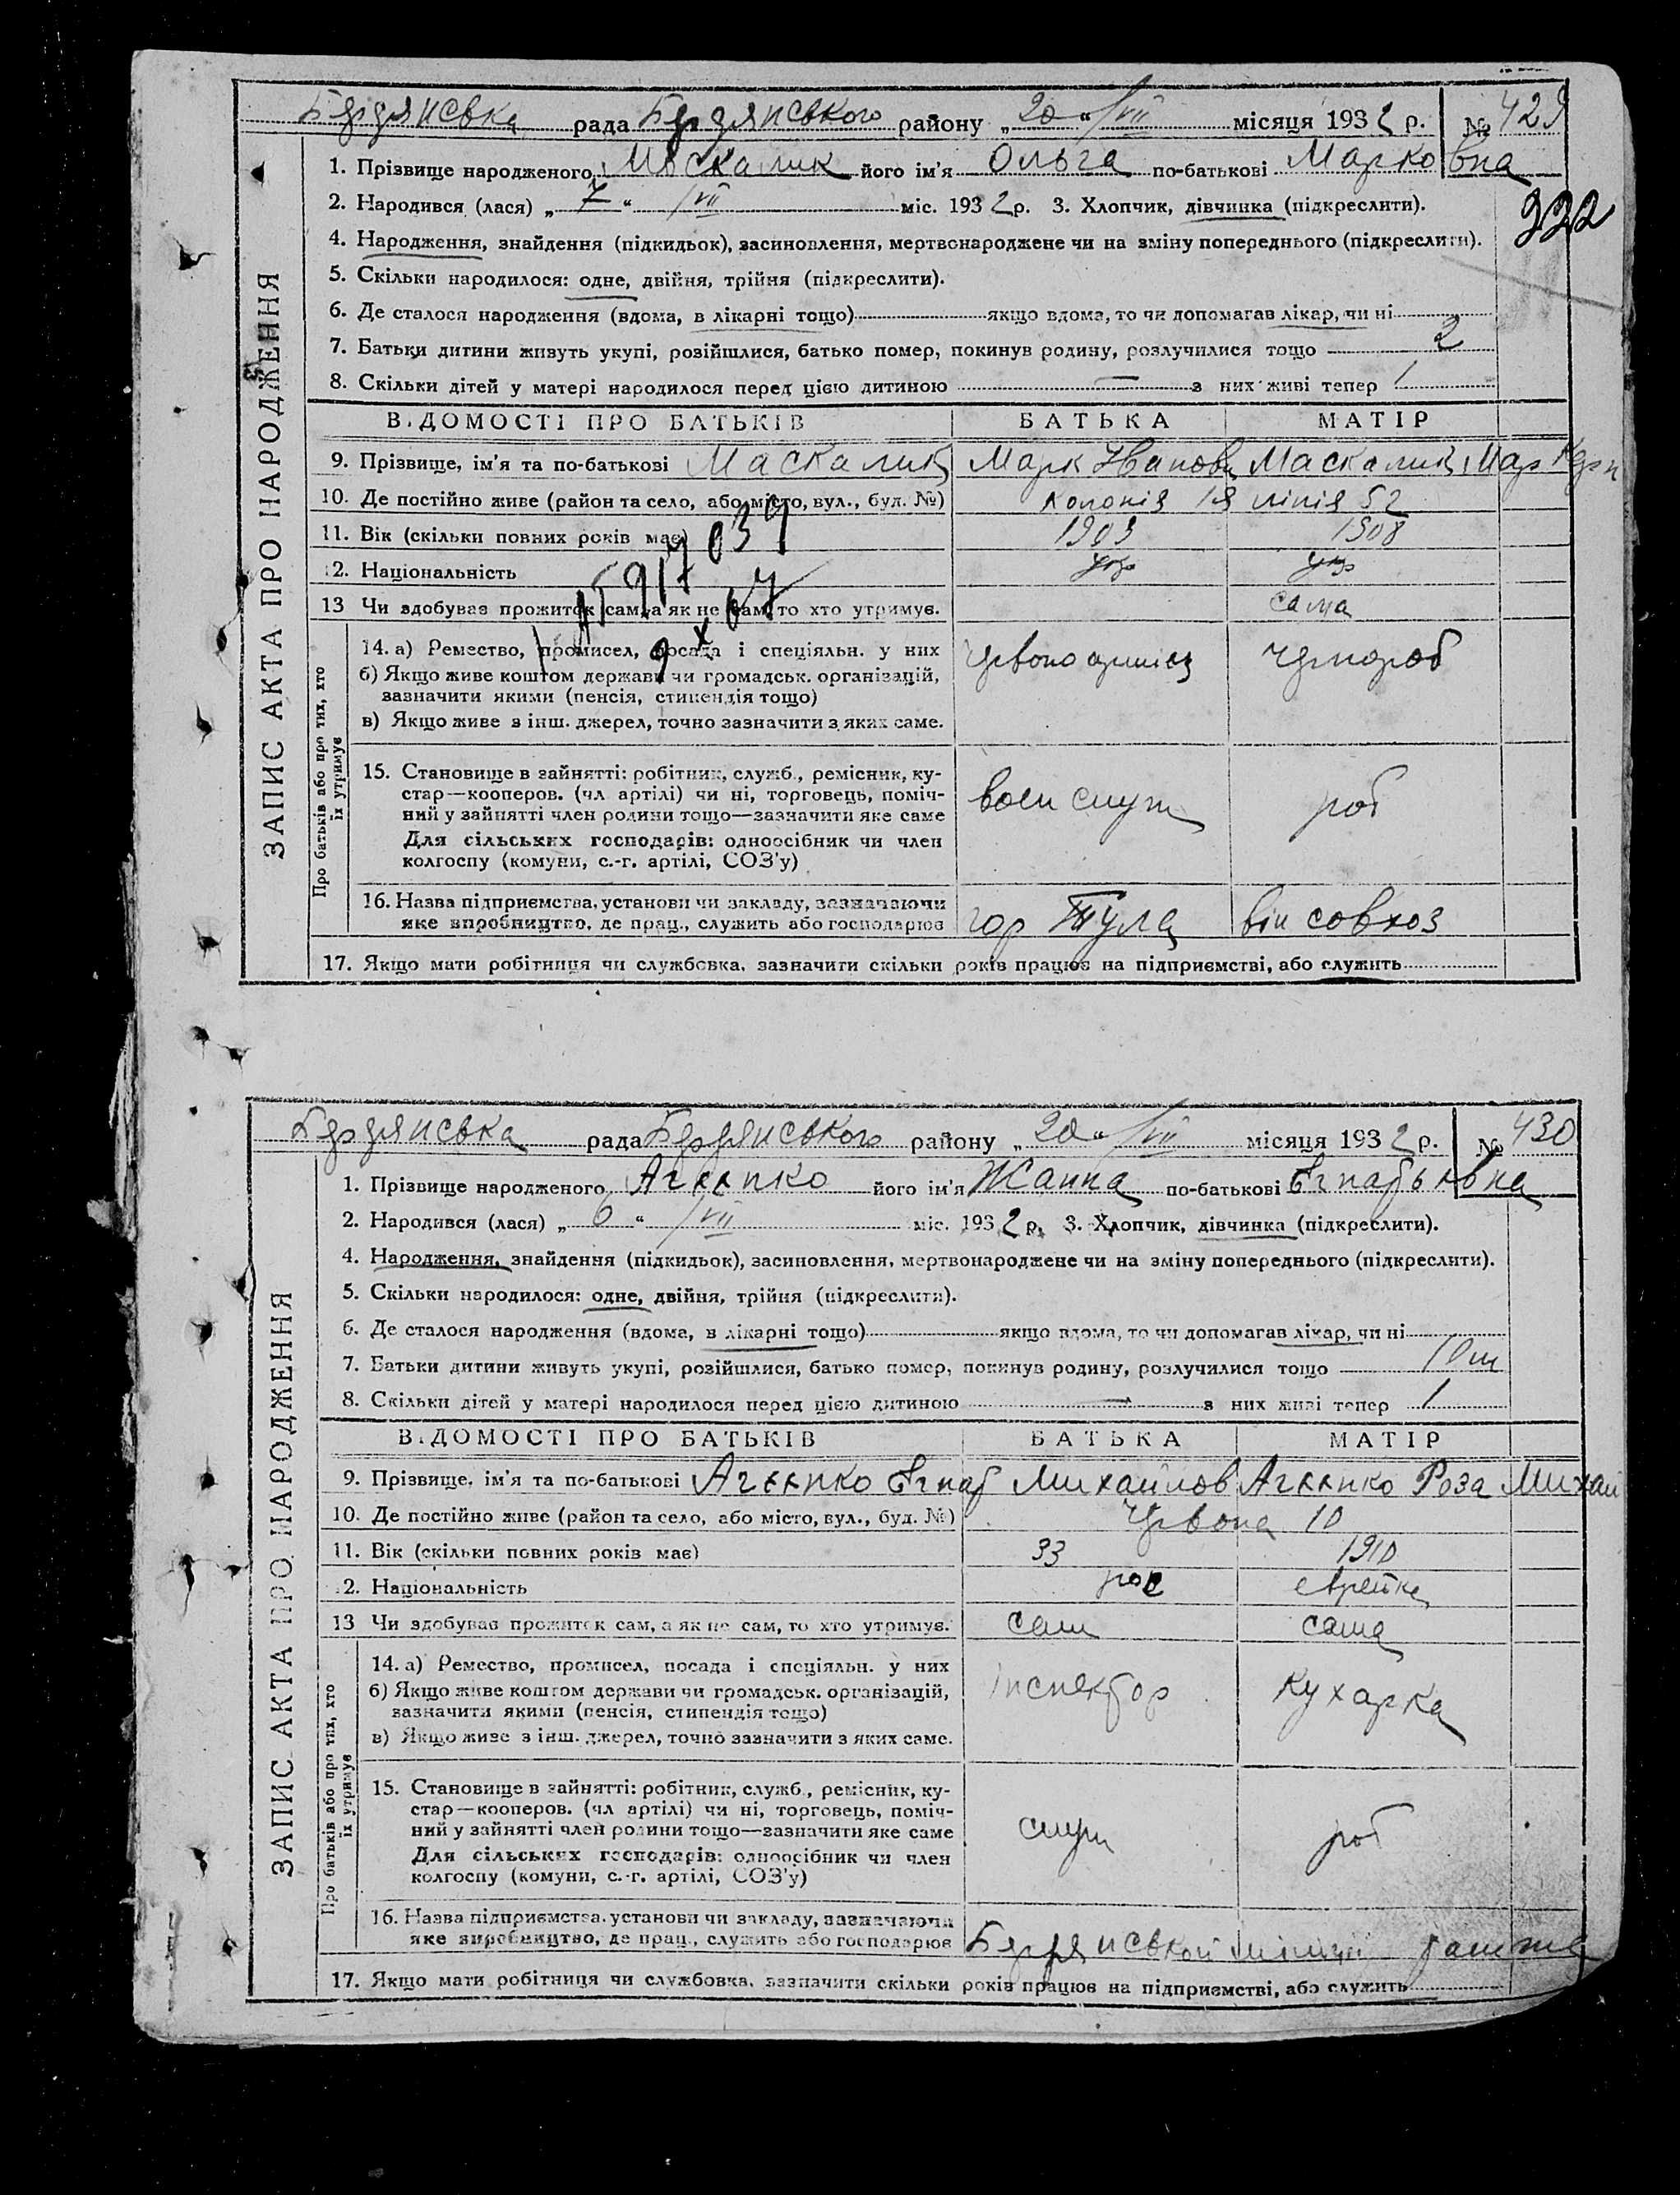 Бердянська рада Бердянського району „20“ VII місяця 1932 р. № 429
1. Прізвище народженого Маскалик його ім'я Ольга по-батькові Марковна
2. Народився (лася) „7“ VII міс. 1932 р. 3. Хлопчик, дівчинка (підкреслити).
322
4. Народження, знайдення (підкидьок), засиновлення, мертвонароджене чи на зміну попереднього (підкреслити).
5. Скільки народилося: одне, двійня, трійня (підкреслити).
6. Де сталося народження (вдома, в лікарні тощо) якщо вдома, то чи допомагав лікар, чи ні
7. Батьки дитини живуть укупі, розійшлися, батько помер, покинув родину, розлучилися тощо 2
8. Скільки дітей у матері народилося перед цією дитиною — з них живі тепер 1
ВІДОМОСТІ ПРО БАТЬКІВ БАТЬКА МАТІР
9. Прізвище, ім'я та по-батькові Маскалик Марк Иванов Маскалик Мар
10. Де постійно живе (район та село, або місто, вул., буд. №) Колонія 1я лінія 52
11. Вік (скільки повних років має) 1909 1908
12. Національність укр укр
13 Чи здобуває прожиток сам, а як не сам, то хто утримує. сама
ЗАПИС АКТА ПРО НАРОДЖЕННЯ
Про батьків або про тих, хто їх утримує
14. а) Ремество, промисел, посада і спеціяльн. у них Червоноармієц Чернороб
б) Якщо живе коштом держави чи громадськ. організацій,
зазначити якими (пенсія, стипендія тощо)
в) Якщо живе з інш. джерел, точно зазначити з яких саме.
15. Становище в зайнятті: робітник, служб., ремісник, ку-
стар—кооперов. (чл артілі) чи ні, торговець, поміч-
ний у зайнятті член родини тощо—зазначити яке саме воен служ роб
Для сільських господарів: одноосібник чи член
колгоспу (комуни, с.-г. артілі, СОЗ'у)
16. Назва підприємства, установи чи закладу, зазначаючи
яке виробництво, де прац., служить або господарює гор Тула він совхоз
17. Якщо мати робітниця чи службовка, зазначити скільки років працює на підприємстві, або служить
Бердянська рада Бердянського району „20“ VII місяця 1932 р. № 430
1. Прізвище народженого Агеенко його ім'я Жанна по-батькові Егнатьевна
2. Народився (лася) „6“ VII міс. 1932 р. 3. Хлопчик, дівчинка (підкреслити).
4. Народження, знайдення (підкидьок), засиновлення, мертвонароджене чи на зміну попереднього (підкреслити).
5. Скільки народилося: одне, двійня, трійня (підкреслити).
6. Де сталося народження (вдома, в лікарні тощо) якщо вдома, то чи допомагав лікар, чи ні
7. Батьки дитини живуть укупі, розійшлися, батько помер, покинув родину, розлучилися тощо
8. Скільки дітей у матері народилося перед цією дитиною — з них живі тепер 1
ВІДОМОСТІ ПРО БАТЬКІВ БАТЬКА МАТІР
9. Прізвище, ім'я та по-батькові Агеенко Егнат Михайлов Агеенко Роза Михай
10. Де постійно живе (район та село, або місто, вул., буд. №) Червона 10
11. Вік (скільки повних років має) 33 1910
12. Національність рос еврейка
13 Чи здобуває прожиток сам, а як не сам, то хто утримує. сам сама
ЗАПИС АКТА ПРО НАРОДЖЕННЯ
Про батьків або про тих, хто їх утримує
14. а) Ремество, промисел, посада і спеціяльн. у них інспектор кухарка
б) Якщо живе коштом держави чи громадськ. організацій,
зазначити якими (пенсія, стипендія тощо)
в) Якщо живе з інш. джерел, точно зазначити з яких саме.
15. Становище в зайнятті: робітник, служб., ремісник, ку-
стар—кооперов. (чл артілі) чи ні, торговець, поміч-
ний у зайнятті член родини тощо—зазначити яке саме служ роб
Для сільських господарів: одноосібник чи член
колгоспу (комуни, с.-г. артілі, СОЗ'у)
16. Назва підприємства, установи чи закладу, зазначаючи
яке виробництво, де прац., служить або господарює Бердянськой міліції
17. Якщо мати робітниця чи службовка, зазначити скільки років працює на підприємстві, або служить